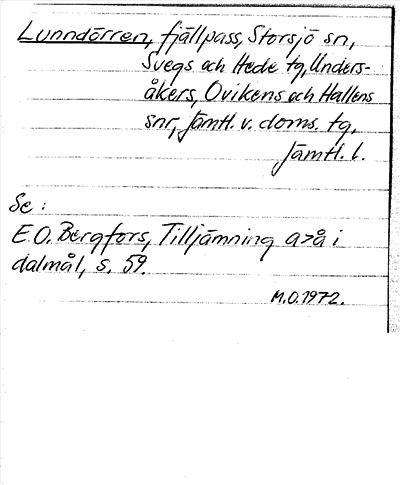 Lunndörren, fjällpass, Storsjö sn,
Svegs och Hede tg, Unders-
åkers, Ovikens och Hallens
snr, Jämtl. v. doms. tg,
Jämtl. l.
Se :
E.O. Bergfors, Tilljämning a>å i
dalmål, s. 59.
M.O. 1972.